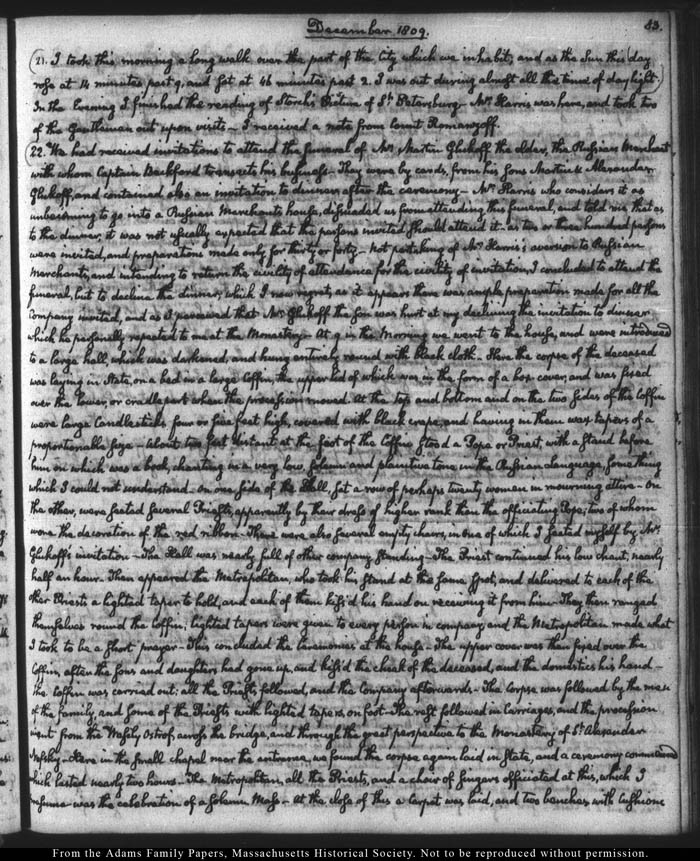 December 1809.
83.
21. I took this morning a long walk over the part of the City which we inhabit; and as the Sun this day
rose at 14 minutes past 9, and set at 46 minutes past 2. I was out during almost all the time of day light.
In the Evening I finished the reading of Storch's Picture of St. Petersburg— Mr. Harris was here, and took two
of the Gentlemen out upon visits— I received a note from Count Romanzoff.
22. We had received invitations to attend the funeral of Mr. Martin Glukoff the elder, the Russian Merchant
with whom Captain Beckford transacts his business— They were by cards, from his Sons Martin & Alexander
Glukoff, and contained also an invitation to dinner after the ceremony— Mr. Harris who considers it as
unbecoming to go into a Russian Merchant's house, dissuaded us from attending this funeral, and told me that as
to the dinner, it was not usually expected that the persons invited should attend it— as two or three hundred persons
were invited, and preparations made only for thirty or forty— Not partaking of Mr. Harris's aversion to Russian
Merchants, and intending to return the civility of attendance for the civility of invitation, I concluded to attend the
funeral, but to decline the dinner; which I now regret, as it appears there was ample preparation made for all the
Company invited, and as I perceived that Mr. Glukoff the son was hurt at my declining the invitation to dinner
which he personally repeated to me at the Monastery— At 9 in the Morning we went to the house, and were introduced
to a large hall, which was darkened, and hung entirely round with black cloth.— Here the corpse of the deceased
was laying in State, on a bed in a large Coffin, the upper lid of which was in the form of a box cover, and was fixed
over the lower, or cradle part when the procession moved. At the top and bottom and on the two sides of the Coffin
were large Candlesticks four or five feet high, covered with black crape, and having in them wax tapers of a
proportionable size— About two feet distant at the foot of the Coffin stood a Pope or Priest with a stand before
him on which was a book, chanting in a very low, solemn and plaintive tone, in the Russian language, something
which I could not understand— On one side of the Hall, sat a row of perhaps twenty women in mourning attire— On
the other, were seated several Priests, apparently by their dress of higher rank than the officiating Pope; two of whom
wore the decoration of the red ribbon— There were also several empty chairs, in one of which I seated myself by Mr.
Glukoff's invitation— The Hall was nearly full of other company standing— The Priest continued his low chant, nearly
half an hour. Then appeared the Metropolitan, who took his stand at the same spot, and delivered to each of the
other Priests a lighted taper to hold, and each of them kiss'd his hand on receiving it from him— They then ranged
themselves round the Coffin; lighted tapers were given to every person in company, and the Metropolitan made what
I took to be a short prayer— This concluded the Ceremonies at the house— The upper cover was then fixed over the
Coffin, after the sons and daughters had gone up, and kiss'd the cheek of the deceased, and the domestics his hand—
the Coffin was carried out: all the Priests followed, and the Company afterwards.— The Corpse was followed by the men
of the family, and some of the Priests with lighted tapers, on foot— The rest followed in Carriages, and the procession
went from the Wassily Ostrof, across the bridge, and through the great perspective to the Monastery of St. Alexander
Nefsky— Here in the small chapel near the entrance, we found the corpse again laid in State, and a ceremony commenced
which lasted nearly two hours— The Metropolitan, all the Priests, and a choir of singers officiated at this, which I
presume was the celebration of a solemn Mass— At the close of this a Carpet was laid, and two benches with Cushions
From the Adams Family Papers, Massachusetts Historical Society. Not to be reproduced without permission.